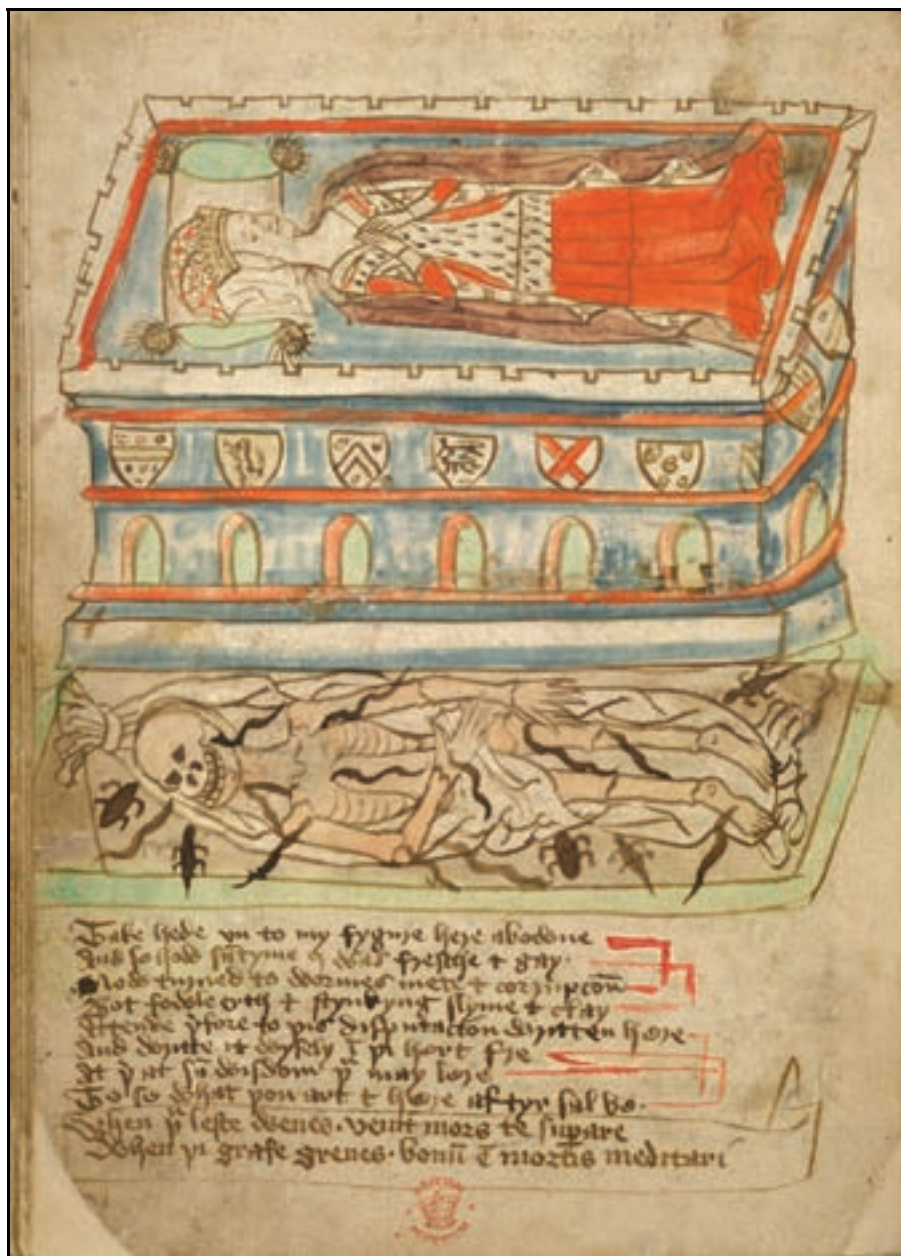 Take hede vn to my fygure here abowne
And se how sūtyme I was fresche & gay
Now turned to wormes mete & corrupcoñ
Bot fowle erth & stynkyng slyme & clay
Attende þfore to þis disputacion written here
And writte it wysely ī þi hert fre
At þ at sū wisdom þu may lere
To se what þou art & here aftyr sal be
When þu leste wenes · venit mors te supare
When þi grafe grenes · bonū ē mortis meditari